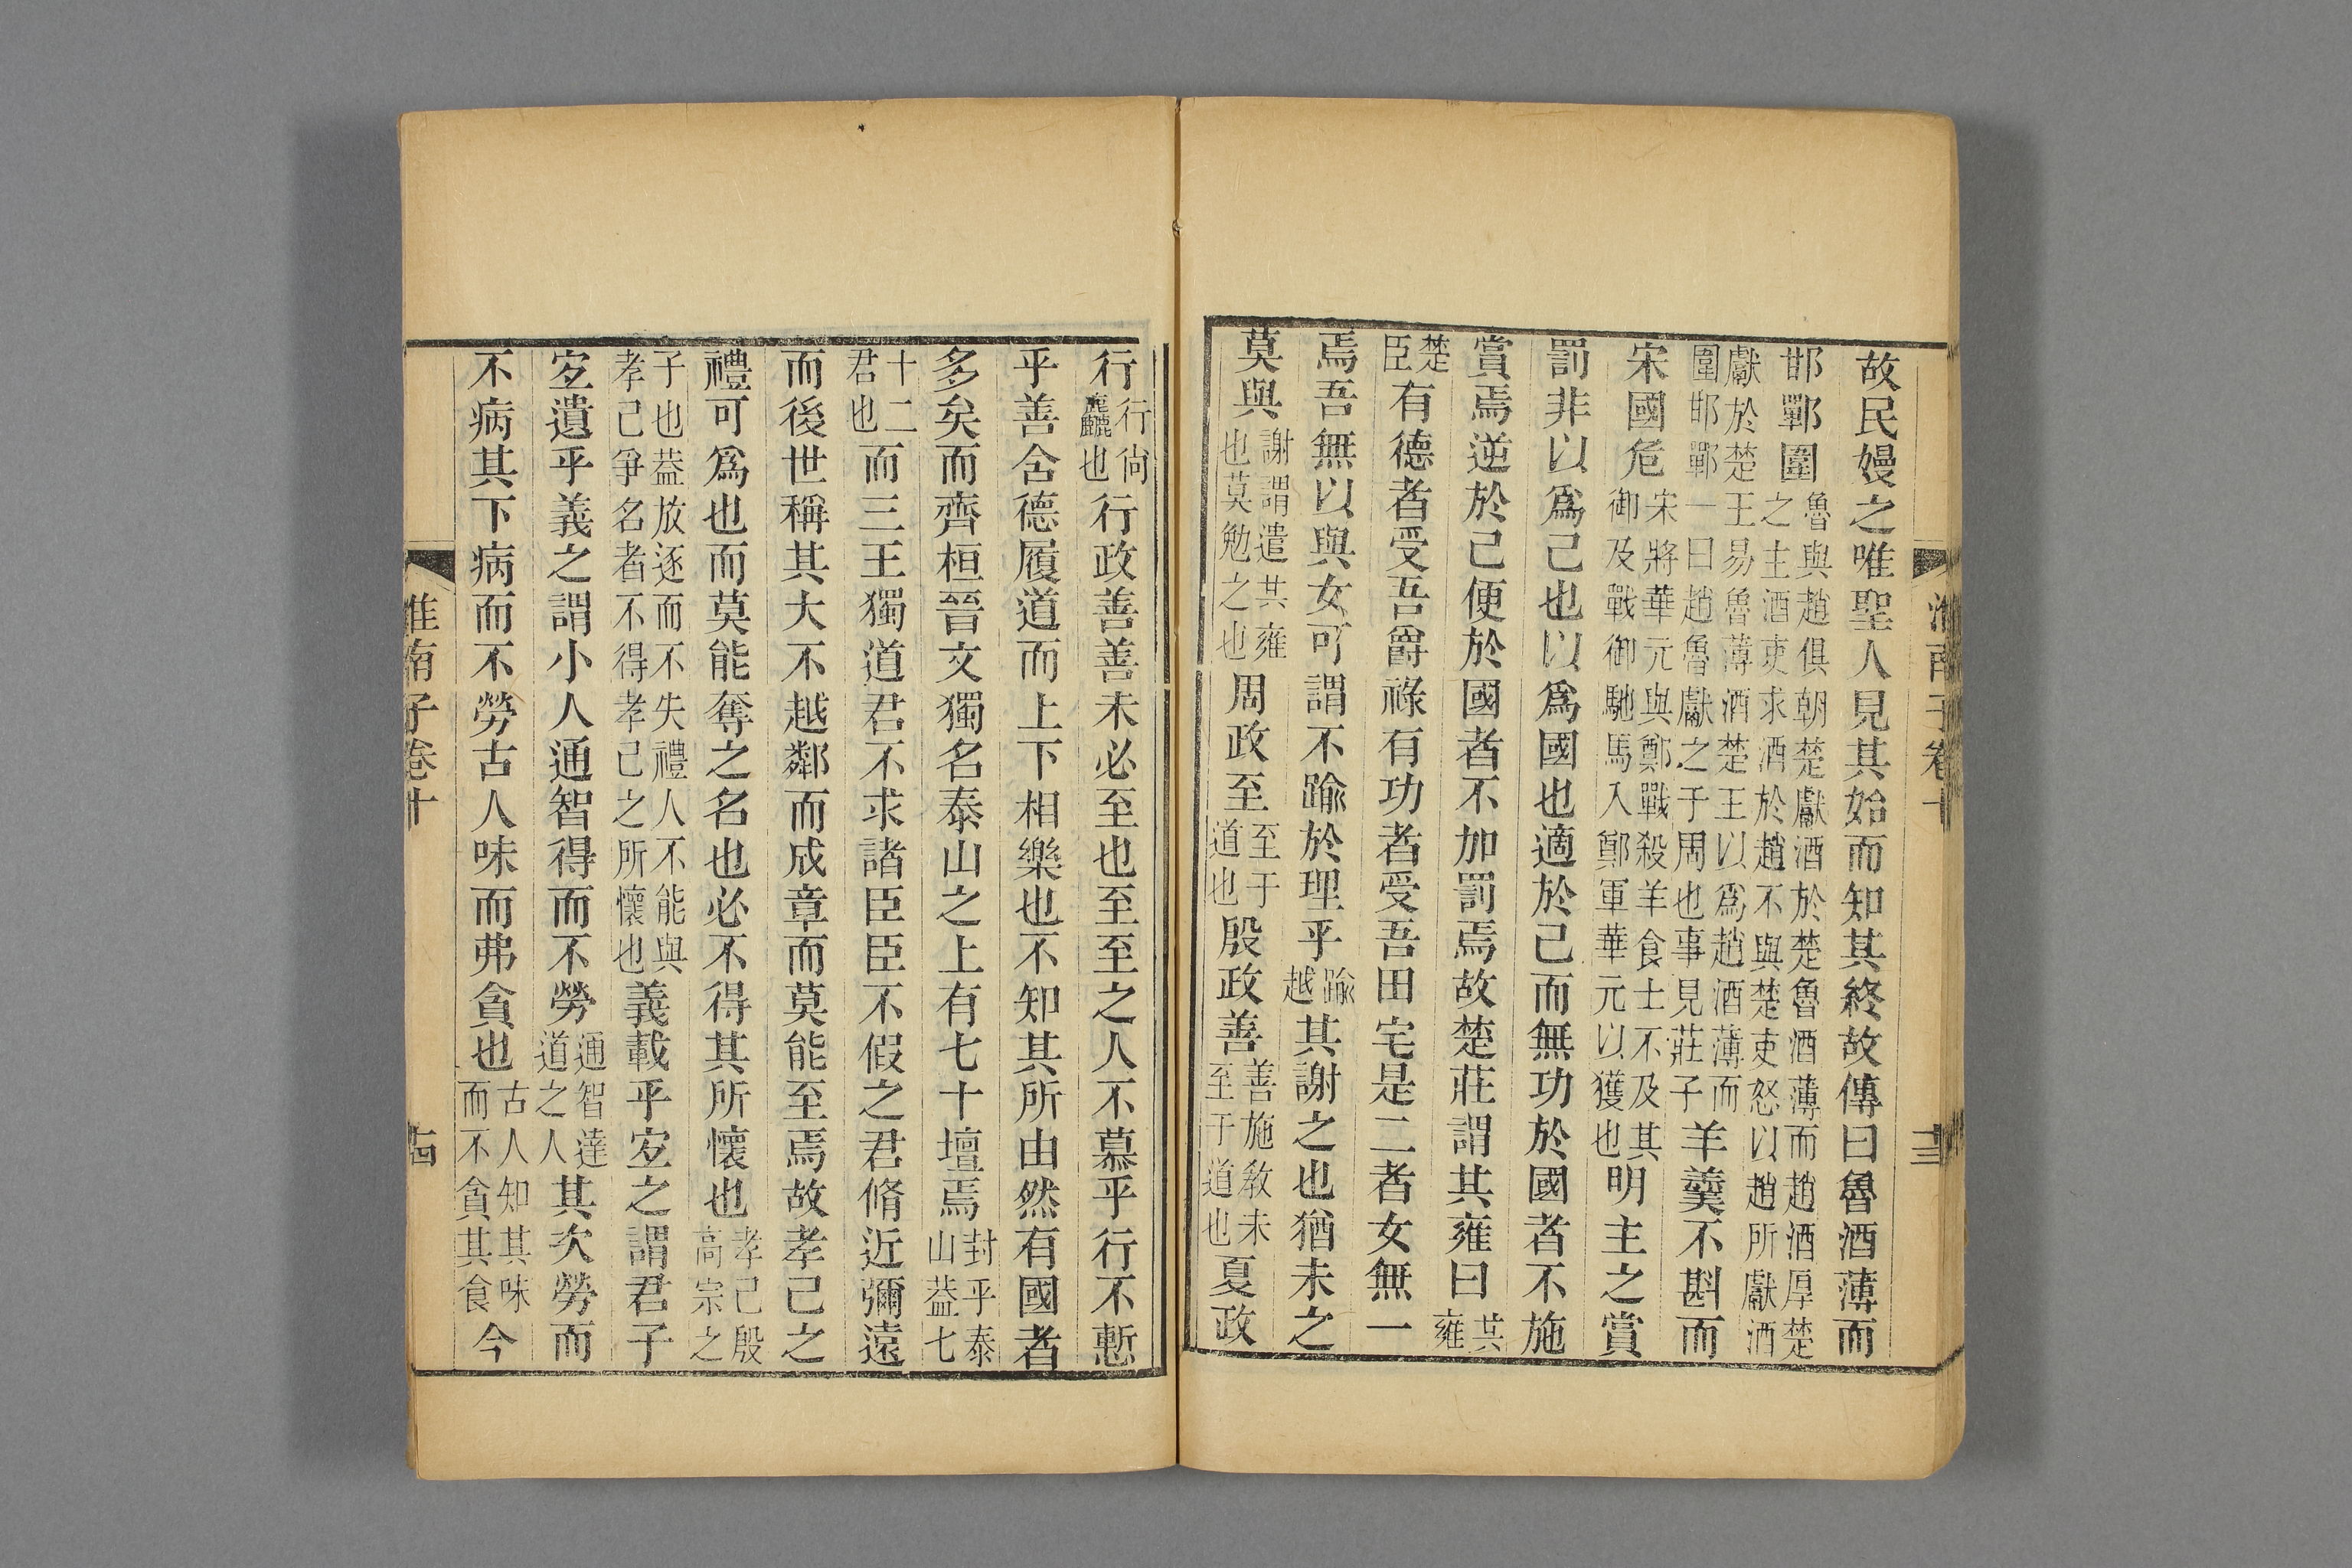 故民嫚之唯聖人見其始而知其終故傳曰魯酒薄而
邯鄲圍魯與趙俱朝楚獻酒於楚魯酒薄而趙酒厚楚之主酒吏求酒於趙不與楚吏怒以趙所獻酒
獻於楚王易魯薄酒楚王以爲趙酒薄而圍邯鄲一曰趙魯獻之于周也事見莊子羊羹不斟而
宋國危宋將華元與鄭戰殺羊食士不及其御及戰御馳馬入鄭軍華元以獲也明主之賞
罰非以爲己也以爲國也適於己而無功於國者不施
賞焉逆於己便於國者不加罰焉故楚莊謂其雍曰共雍
楚臣有德者受吾爵祿有功者受吾田宅是二者女無一
焉吾無以與女可謂不踰於理乎踰越其謝之也猶未之
莫與謝謂遣其雍也莫勉之也周政至至于道也殷政善善施敎未至于道也夏政
淮南子卷十
十三
行行尙麤也行政善善未必至也至至之人不慕乎行不慙
乎善含德履道而上下相樂也不知其所由然有國者
多矣而齊桓晉文獨名泰山之上有七十壇焉封乎泰山葢七
十二君也而三王獨道君不求諸臣臣不假之君脩近彌遠
而後世稱其大不越鄰而成章而莫能至焉故孝己之
禮可爲也而莫能奪之名也必不得其所懷也孝己殷高宗之
子也葢放逐而不失禮人不能與孝己爭名者不得孝己之所懷也義載乎宐之謂君子
宐遺乎義之謂小人通智得而不勞通智達道之人其次勞而
不病其下病而不勞古人味而弗貪也古人知其味而不貪其食今
淮南子卷十
十四